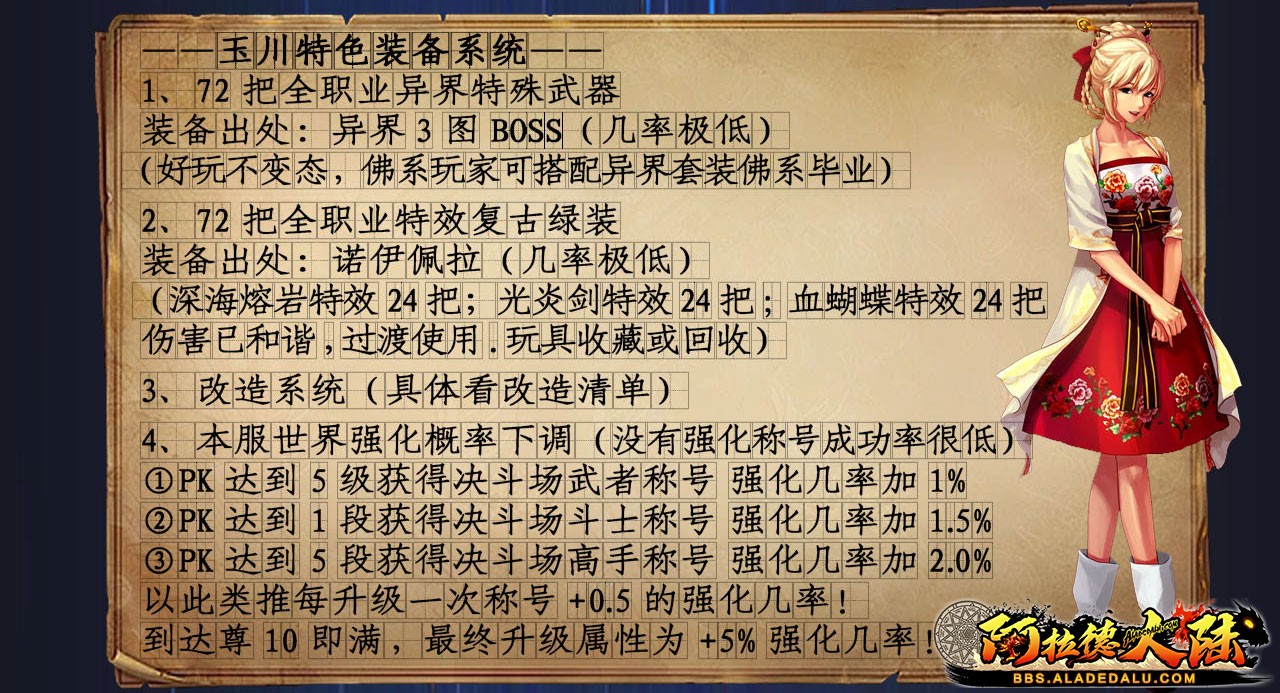 ——玉川特色装备系统——
1、72 把全职业异界特殊武器
装备出处：异界 3 图 BOSS（几率极低）
(好玩不变态，佛系玩家可搭配异界套装佛系毕业)
2、72 把全职业特效复古绿装
装备出处：诺伊佩拉（几率极低）
（深海熔岩特效 24 把；光炎剑特效 24 把；血蝴蝶特效 24 把
伤害已和谐,过渡使用.玩具收藏或回收）
3、改造系统（具体看改造清单）
4、本服世界强化概率下调（没有强化称号成功率很低）
①PK 达到 5 级获得决斗场武者称号 强化几率加 1%
②PK 达到 1 段获得决斗场斗士称号 强化几率加 1.5%
③PK 达到 5 段获得决斗场高手称号 强化几率加 2.0%
以此类推每升级一次称号 +0.5 的强化几率！
到达尊 10 即满，最终升级属性为 +5% 强化几率！
阿拉德大陆
BBS.ALADEDALU.COM